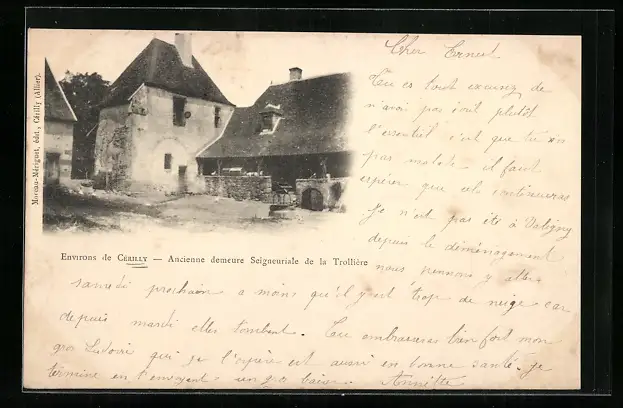 Moreau-Mériguet, édit., Cérilly (Allier).
Environs de CÉRILLY — Ancienne demeure Seigneuriale de la Trollière
Cher Ernest
Tu es tout excusé, de
n'avoir pas écrit plutôt
l'essentiel c'est que tu
pas malade. il faut
espérer que cela continueras
Je n'est pas été à Valigny
depuis le déménagement
nous pensons y aller
samedi prochain a moins qu'il y est trop de neige car
depuis mardi elle tombent. Tu embrasseras bien fort mon
gros qui je l'espère est aussi en bonne santé. Je
termine en t'envoyant un gros baiser. Annette